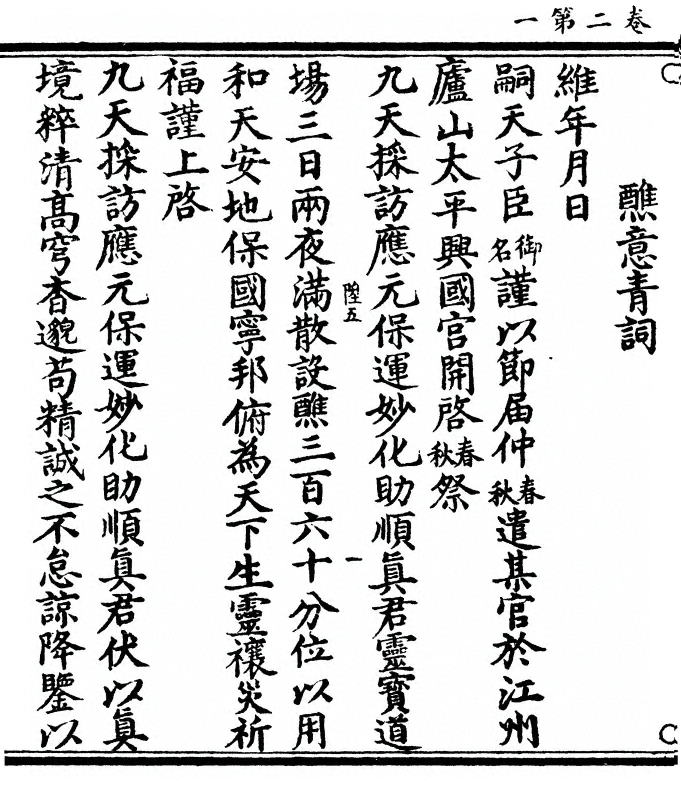 卷二第一
醮意青詞
維年月日
嗣天子臣御名謹以節届仲春秋遣某官於江州
廬山太平興國宮開啓春秋祭
九天採訪應元保運妙化助順眞君靈寶道
陸五
場三日兩夜滿散設醮三百六十分位以用
和天安地保國寧邦俯為天下生靈禳災祈
福謹上啓
九天採訪應元保運妙化助順眞君伏以眞
境粹清高穹杳邈苟精誠之不怠諒降鑒以